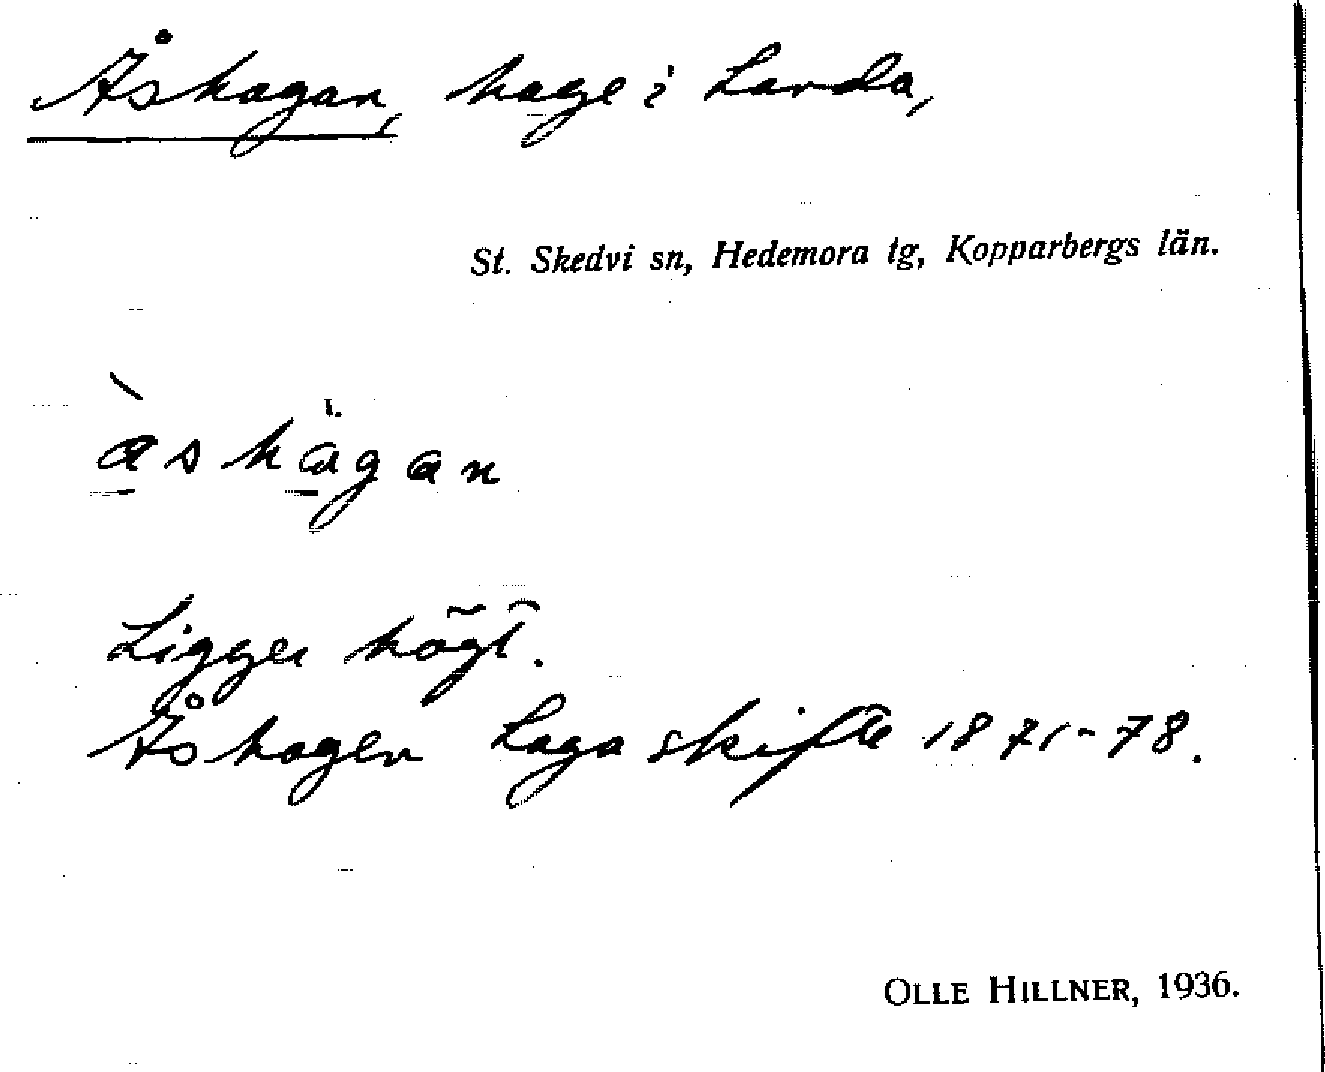 Åshagan, hage i Landa,
St. Skedvi sn, Hedemora tg, Kopparbergs län.
Ligger högt.
Åshagen Laga skifte 1871-78.
OLLE HILLNER, 1936.